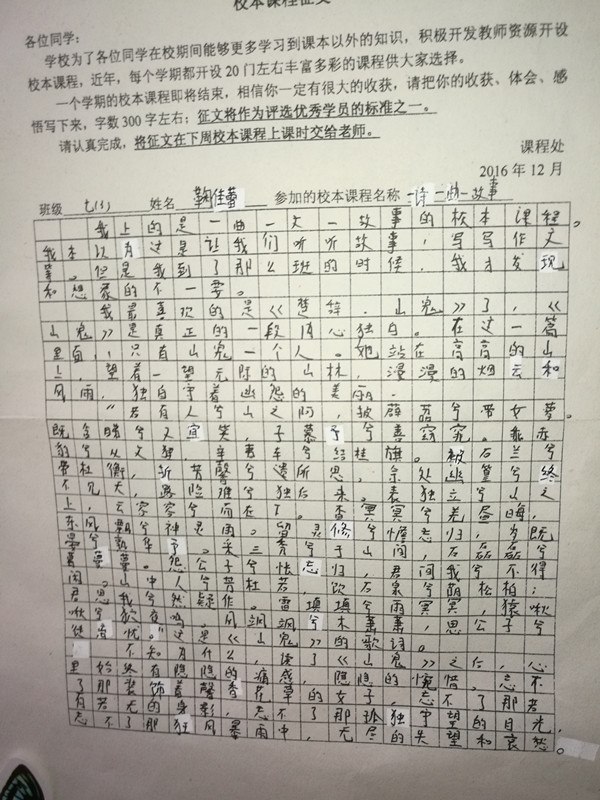 校本课程征文
各位同学：
学校为了各位同学在校期间能够更多学习到课本以外的知识，积极开发教师资源开设
校本课程，近年，每个学期都开设 20 门左右丰富多彩的课程供大家选择。
一个学期的校本课程即将结束，相信你一定有很大的收获，请把你的收获、体会、感
悟写下来，字数 300 字左右；征文将作为评选优秀学员的标准之一。
请认真完成，将征文在下周校本课程上课时交给老师。
课程处
2016 年 12 月
班级 七(1) 姓名 佳蕾 参加的校本课程名称 一诗一曲一故事
我上的是一曲一文一故事的校本课程。
我本以为这是让我们听听故事，写写作文
等。但是我到了那么班的时候，我才发现
和想象的不一要。
我最喜欢的是《楚辞·山鬼》了，《
山鬼》是真正的一段内心独白。在这一篇
里面，只有山鬼一个人。她站在高高的山
上，望着一望无际的山林，漫漫的烟云和
风雨，独自守着幽怨的美丽。
“若有人兮山之阿，披薜荔兮带女萝。
既含睇兮又宜笑，子慕予兮善窈窕。乘赤
豹兮从文狸，辛夷车兮结桂旗。被石兰兮
带杜衡，折芳馨兮遗所思，余处幽篁兮终
不见天，路险难兮独后来。表独立兮山之
上，云容容兮而在下。杳冥冥兮羌昼晦，
东风飘兮神灵雨。留灵修兮憺忘归，岁既
晏兮孰华予。采三秀兮于山间，石磊磊兮
葛蔓蔓。怨公子兮怅忘归，君间我兮不得
闲。山中人兮芳杜若，饮石泉兮荫松柏；
君思我兮然疑作。雷填填兮雨冥冥，猿啾
啾兮狖夜鸣。风飒飒兮木萧萧，思公子兮
徒离忧。”这是《山鬼》的歌词。
不知为什么，读了《山鬼》之后，心
里始终有隐隐的痛感，隐隐的惋惜。忘不
了那装饰着馨香花草的女子，忘不了那若
有若无的身影，忘不了那孤独守望的目光，
忘不了那狂风暴雨中，无尽的失望和哀愁。